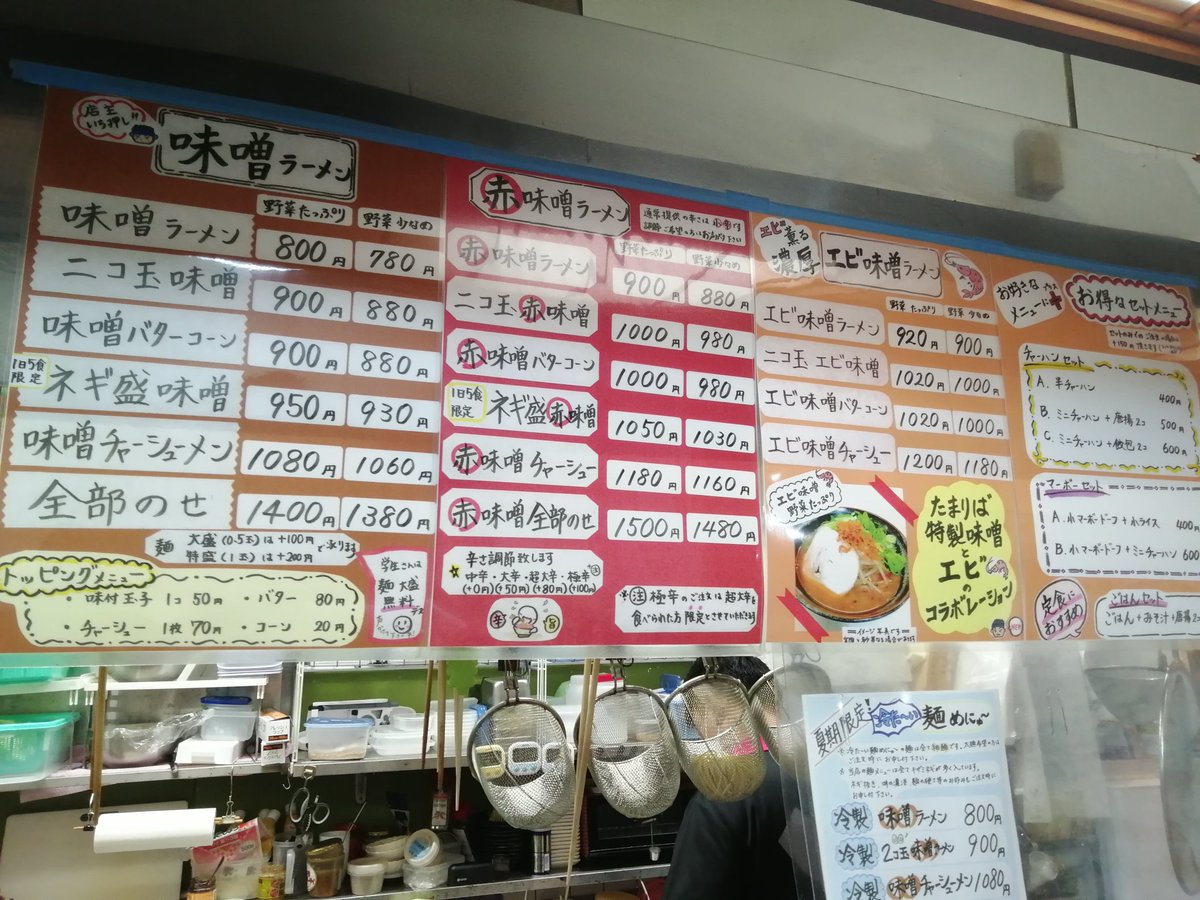 店主
いち押し!!
味噌ラーメン
野菜たっぷり 野菜少なめ
味噌ラーメン 800円 780円
ニコ玉味噌 900円 880円
味噌バターコーン 900円 880円
1日5食
限定
ネギ盛味噌 950円 930円
味噌チャーシューメン 1080円 1060円
全部のせ 1400円 1380円
麺 大盛(0.5玉)は+100円
特盛(1玉)は+200円 で承ります
トッピングメニュー
・味付玉子 1コ 50円 ・バター 80円
・チャーシュー 1枚 70円 ・コーン 20円
学生さんは
麺大盛
無料
デス
赤味噌ラーメン
通常提供の辛さは小辛です
調節ご希望の方はお声がけ下さい
野菜たっぷり 野菜少なめ
赤味噌ラーメン 900円 880円
ニコ玉赤味噌 1000円 980円
赤味噌バターコーン 1000円 980円
1日5食
限定
ネギ盛赤味噌 1050円 1030円
赤味噌チャーシュー 1180円 1160円
赤味噌全部のせ 1500円 1480円
辛さ調節致します
中辛・大辛・超大辛・極辛注
(+0円)(+50円)(+80円)(+100円)
辛 旨
※注 極辛のご注文は超大辛を
食べられた方限定とさせていただきます
エビ薫る
濃厚
エビ味噌ラーメン
野菜たっぷり 野菜少なめ
エビ味噌ラーメン 920円 900円
ニコ玉エビ味噌 1020円 1000円
エビ味噌バターコーン 1020円 1000円
エビ味噌チャーシュー 1200円 1180円
エビ味噌
野菜たっぷり
=イメージ写真です=
たまりば
特製味噌
と
エビ
の
コラボレーション
お好きな
メニューに
プラス
お得なセットメニュー
セットのみのご注文の場合は
+150円頂きます
チャーハンセット
A. 半チャーハン 400円
B. ミニチャーハン+唐揚2コ 500円
C. ミニチャーハン+餃包2コ 600円
マーボーセット
A. 小マーボードーフ+小ライス 400円
B. 小マーボードーフ+ミニチャーハン 600円
定食に
おすすめ
ごはんセット
ごはん+みそ汁+唐揚2コ
夏期限定!
冷た~い麺めにゅ~
冷製 味噌ラーメン 800円
冷製 2コ玉味噌ラーメン 900円
冷製 味噌チャーシューメン 1080円